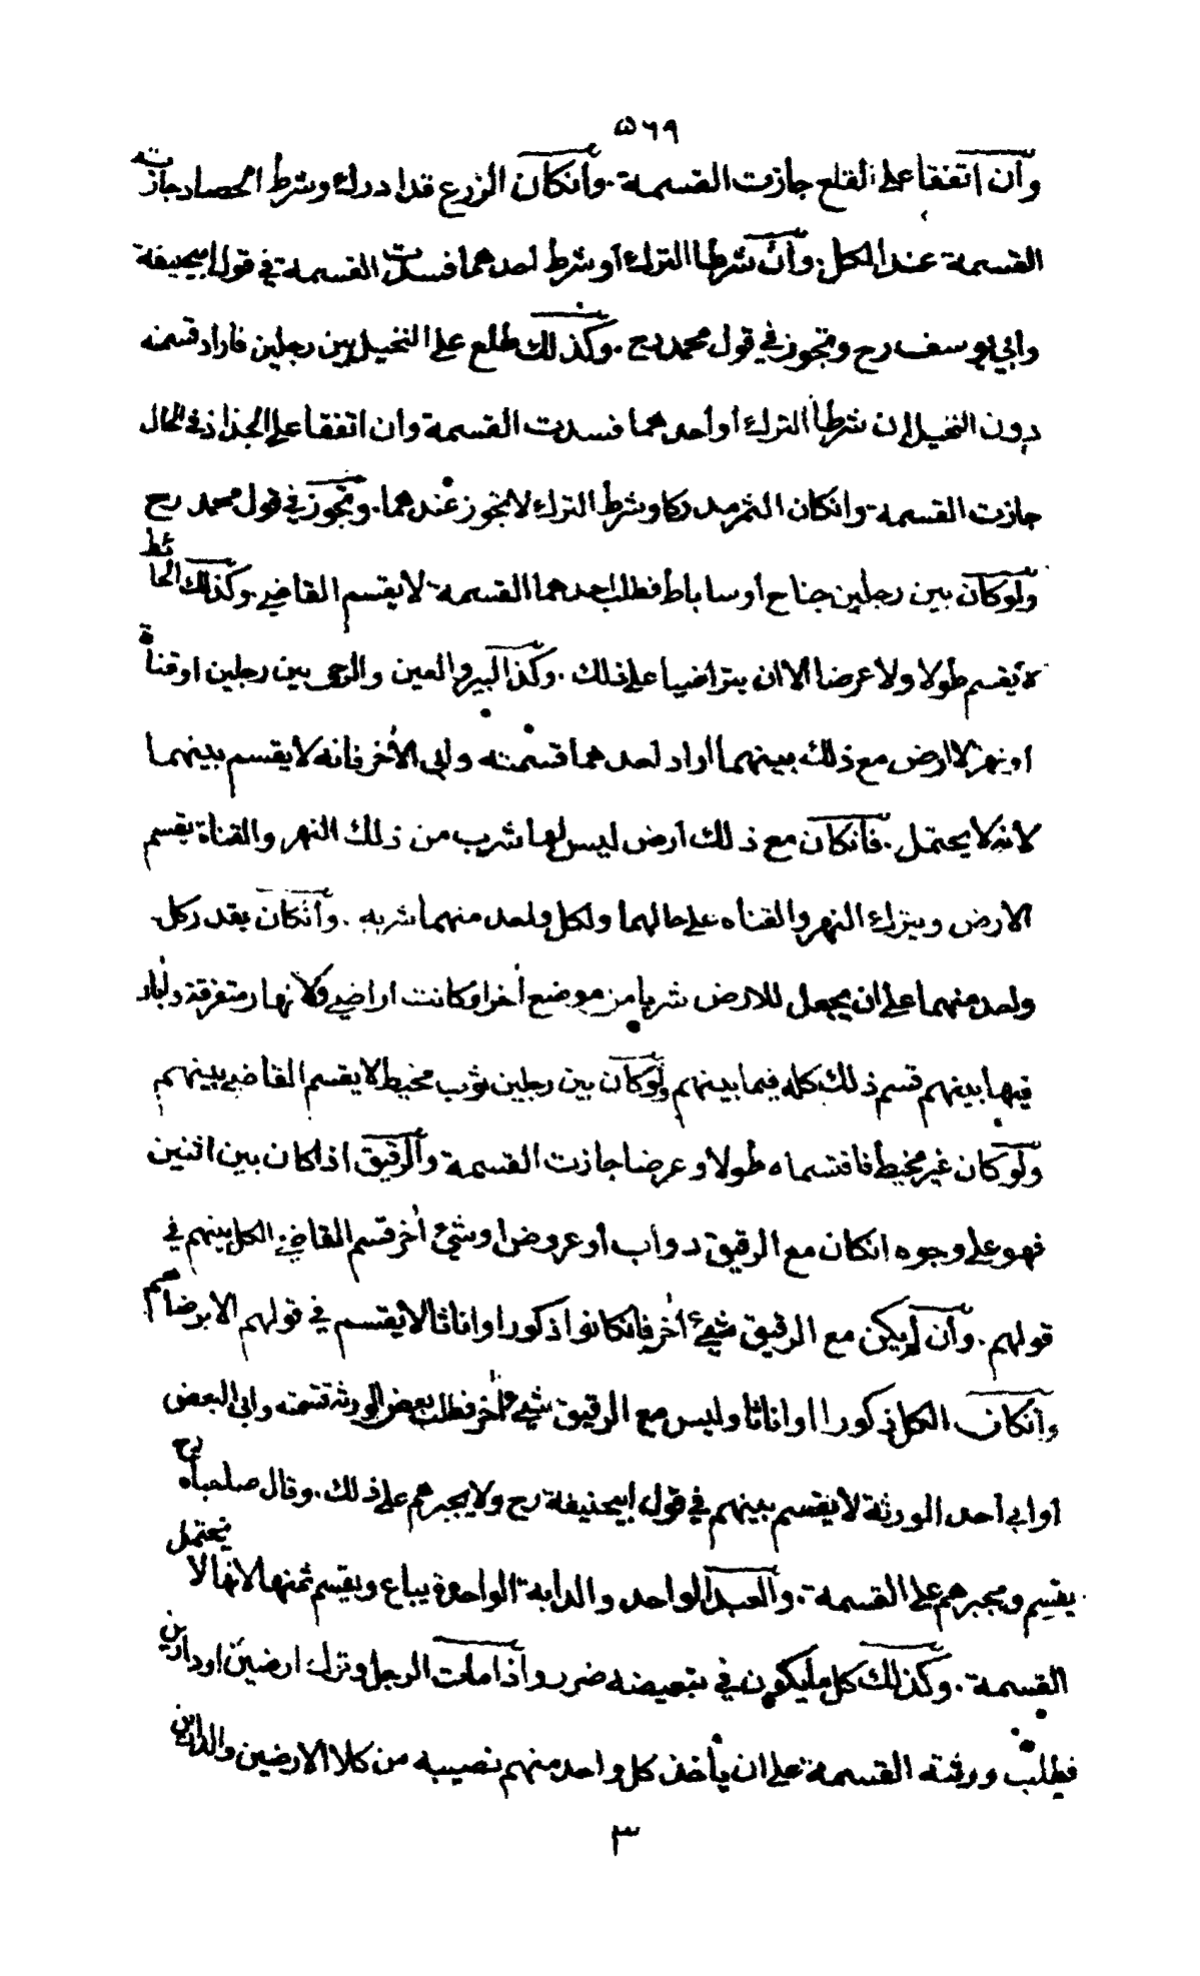 ٥٦٩
وان اتفقا على القلع جازت القسمة. وانكان الزرع قد ادرك وشرط الحصاد جازت
القسمة عند الكل. وان شرطا الترك او شرط احدهما فسدت القسمة في قول ابيحنيفة
وابي يوسف رح وتجوز في قول محمد رح. وكذلك طلع على النخيل بين رجلين فاراد قسمته
دون النخيل ان شرطا الترك او احدهما فسدت القسمة وان اتفقا على الجذاذ في الحال
جازت القسمة وانكان الثمر مدركا وشرط الترك لا تجوز عندهما. وتجوز في قول محمد رح
ولو كان بين رجلين جناح او ساباط فطلب احدهما القسمة لا يقسم القاضي. وكذلك الحائط
لا يقسم طولا ولا عرضا الا ان يتراضيا على ذلك. وكذا البير والعين والرحى بين رجلين او قناة
او نهر لا ارض مع ذلك بينهما اراد احدهما قسمته وابى الآخر فانه لا يقسم بينهما
لانه لا يحتمل. فانكان مع ذلك ارض ليس لها شرب من ذلك النهر والقناة يقسم
الارض ويترك النهر والقناه على حالهما ولكل واحد منهما شربه. وانكان يقدر كل
واحد منهما على ان يجعل للارض شربا من موضع آخر او كانت اراضي ولانهار متفرقة وآبار
فيها بينهم قسم ذلك كله فيما بينهم ولو كان بين رجلين ثوب مخيط لا يقسم القاضي بينهم
ولو كان غير مخيط فاقتسماه طولا وعرضا جازت القسمة والرقيق اذا كان بين اثنين
فهو على وجوه انكان مع الرقيق دواب او عروض او شيء آخر قسم القاضي الكل بينهم في
قولهم. وان لم يكن مع الرقيق شيء آخر فانكانوا ذكورا او اناثا لا يقسم في قولهم الا برضاهم
وانكان الكل ذكورا او اناثا وليس مع الرقيق شيء آخر فطلب بعض الورثة قسمته وابى البعض
او ابى احد الورثة لا يقسم بينهم في قول ابيحنيفة رح ولا يجبرهم على ذلك. وقال صاحباه رح
يقسم ويجبرهم على القسمة. والعبد الواحد والدابة الواحدة يباع ويقسم ثمنها لانها لا يحتمل
القسمة. وكذلك كل ما يكون في تبعيضه ضرر واذا مات الرجل وترك ارضين او دارين
فطلب ورثته القسمة على ان يأخذ كل واحد منهم نصيبه من كلا الارضين والدارين
٣